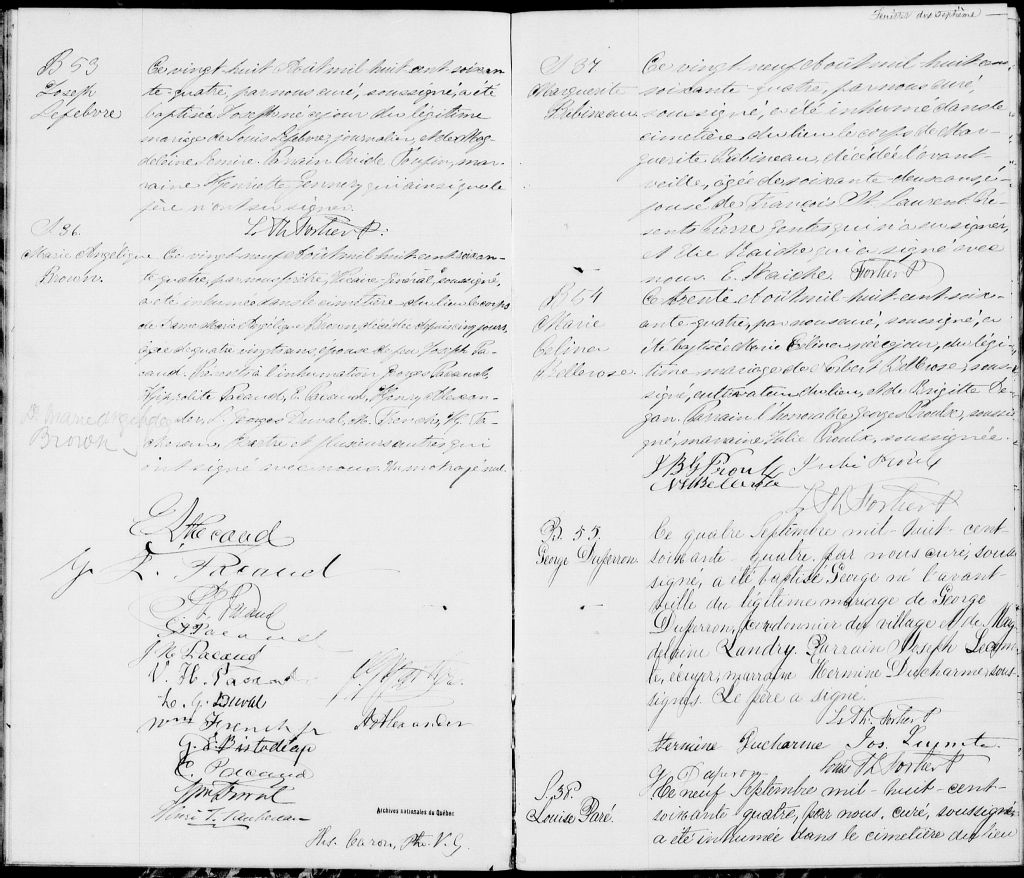 B 53
Joseph
Lefebvre
Ce vingt huit Août mil huit cent soixan-
te-quatre, par nous curé, soussigné, a été
baptisé Joseph né ce jour du légitime
mariage de Louis Lefebvre, journalier, et de Mag-
deleine Parrain Ovide mar-
raine Henriette qui ainsi que le
père n'ont su signer.
L. Th. Fortier P.
S 36.
Marie Angélique
Brown.
Ce vingt neuf Août mil huit cent soixan-
te quatre, par nous prêtre, Vicaire-Général, soussigné,
a été inhumé dans le cimetière du lieu le corps
de Dame Marie Angélique Brown décédée depuis cinq jours,
âgée de quatre vingt ans, épouse de feu Joseph Pa-
caud. Présents à l'inhumation Georges Pacaud,
Hippolite Pacaud, E. Pacaud, Henry Alexan-
der, L. Georges Duval, Wm. French,
et plusieurs autres qui
ont signé avec nous. Un mot rayé nul.
Marie Angélique
Brown
E. L. Pacaud
G. E. Pacaud
P. L. Pacaud
J. N. Pacaud
V. H. Pacaud
L. G. Duval
Wm French jr
H. Alexander
C. Pacaud
Archives nationales du Québec
Hs. Caron, Ptre. V. G.
Feuillet dix septième
S 37
Marguerite
Robineau
Ce vingt neuf Août mil huit cent
soixante-quatre, par nous curé,
soussigné, a été inhumé dans le
cimetière du lieu le corps de Mar-
guerite Robineau, décédée l'avant-
veille, âgée de soixante deux ans, é-
pouse de François St. Laurent. Pré-
sents Pierre qui n'a su signer,
et Elie Laiche qui a signé avec
nous. E. Laiche Fortier P
B 54
Marie
Celina
Bellerose.
Ce trente Août mil huit cent soix-
ante-quatre, par nous curé, soussigné, a
été baptisée Marie Celina née ce jour, du légi-
time mariage de Norbert Bellerose, sous-
signé, cultivateur du lieu, et de Brigitte
Parrain l'honorable Georges Proulx, soussi-
gné, marraine Julie Proulx, soussignée.
J B G Proulx Julie Proulx
N. Bellerose
L. Th. Fortier P
B. 55.
George Duperron.
Ce quatre Septembre mil-huit-cent
soixante-quatre, par nous curé, sous-
signé, a été baptisé George né l'avant
veille du légitime mariage de George
Duperron, cordonnier du village et de Mag-
deleine Landry. Parrain Joseph
écuyer, marraine Hermine Ducharme, sous-
signés. Le père a signé.
L. Th. Fortier P
Hermine Ducharme Jos.
G Duperron Louis Th. Fortier P
S. 38.
Louise Paré.
Ce neuf Septembre mil-huit-cent-
soixante quatre, par nous, curé, soussigné
a été inhumée dans le cimetière du lieu